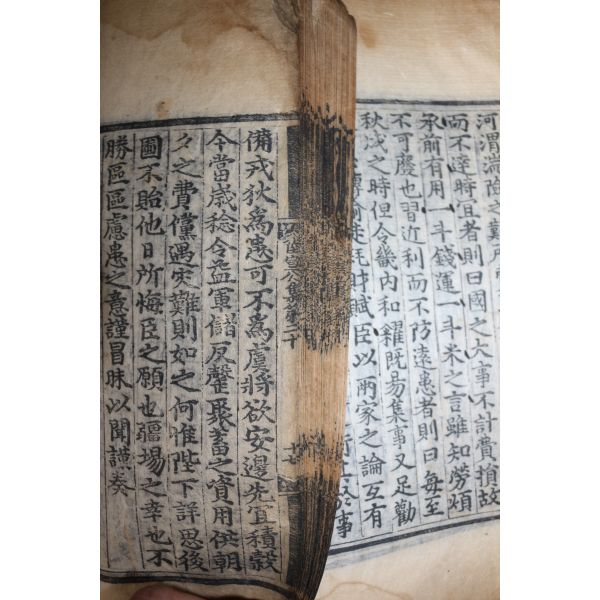 河渭湍險之艱所
而不達時宜者則曰國之大事不計費損故
承前有用一斗錢運一斗米之言雖知勞煩
不可廢也習近利而不防遠患者則曰每至
秋成之時但令畿內和糴既易集事又足勸
轉輸徒耗財賦臣以兩家之論互有
事
宣公集卷二十
十七
備戎狄爲患可不爲虞將欲安邊先宜積穀
今當歲稔令益軍儲反罄聚蓄之資用供朝
夕之費儻遇災難則如之何惟陛下詳思後
圖不貽他日所悔臣之願也疆場之幸也不
勝區區慮患之意謹冒昧以聞謹奏